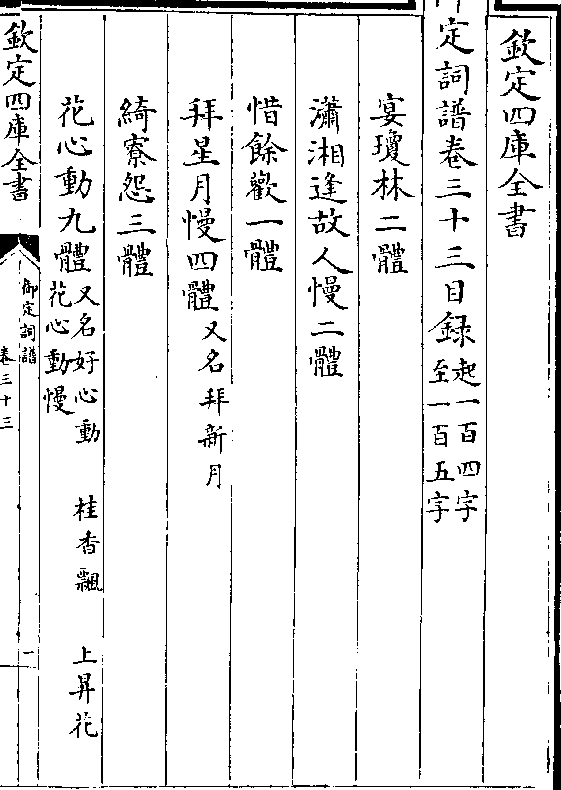 欽定四庫全書
定詞譜卷三十三目録 起一百四字
至一百五字
宴瓊林二體
瀟湘逢故人慢二體
惜餘歡一體
拜星月慢四體 又名拜新月
綺寮怨三體
花心動九體 又名好心動 桂香飄 上昇花
花心動慢
欽定四庫全書
御定詞譜
卷三十三
一